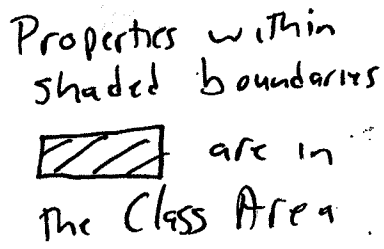 Properties within
shaded boundaries
are in
the Class Area.